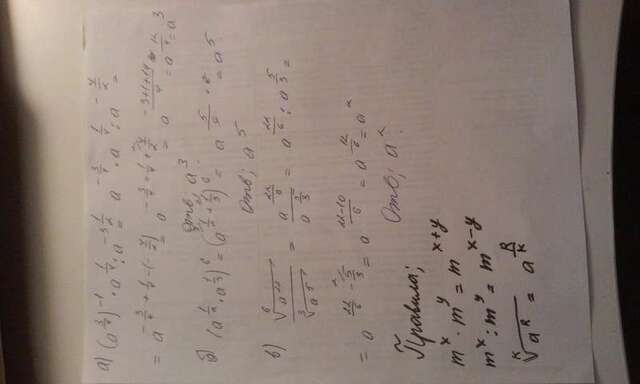 а) (a^{3/4})^{-1} · a^{1/4} : a^{-3 1/2} = a^{-3/4} · a^{1/4} : a^{-7/2} =
= a^{-3/4 + 1/4 - (-7/2)} = a^{-3/4 + 1/4 + 7/2} = a^{(-3+1+14)/4} = a^{12/4} = a^3
Отв; a^3.
б) (a^{1/2} · a^{1/3})^6 = (a^{1/2 + 1/3})^6 = a^{5/6 · 6} = a^5.
Отв; a^5
в) \frac{\sqrt[6]{a^{22}}}{\sqrt[3]{a^5}} = \frac{a^{22/6}}{a^{5/3}} = a^{22/6} : a^{5/3} =
= a^{22/6 - 5/3} = a^{(22-10)/6} = a^{12/6} = a^2
Отв; a^2.
Правила;
m^x · m^y = m^{x+y}
m^x : m^y = m^{x-y}
\sqrt[k]{a^R} = a^{R/k}